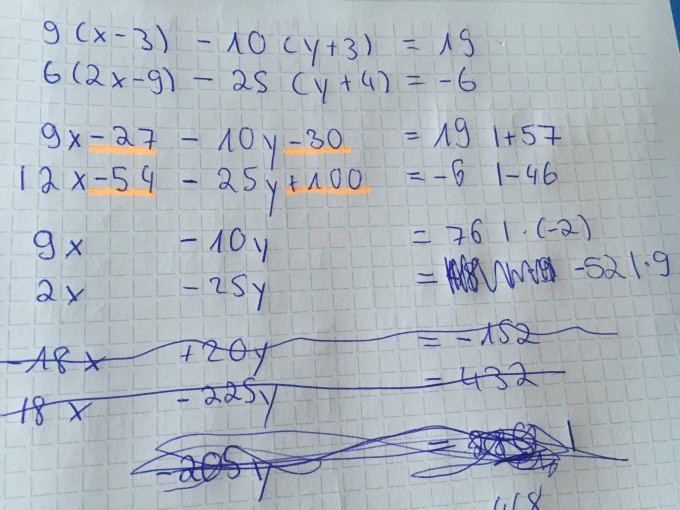 9(x-3) - 10(y+3) = 19
6(2x-9) - 25(y+4) = -6
9x-27 - 10y-30 = 19 |+57
12x-54 - 25y+100 = -6 |-46
9x - 10y = 76 |·(-2)
2x - 25y = -52 |·9
-18x +20y = -152
18x - 225y = 432
-205y = |